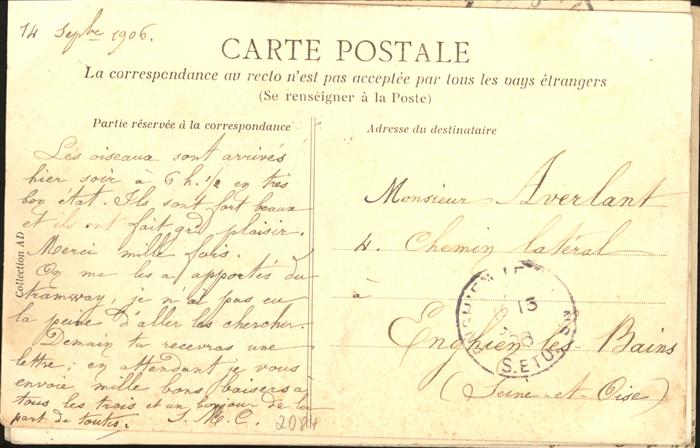 14 Sepbre 1906.
CARTE POSTALE
La correspondance au recto n'est pas acceptée par tous les pays étrangers
(Se renseigner à la Poste)
Partie réservée à la correspondance
Les oiseaux sont arrivés
hier soir à 6 h. 1/2 en très
bon état. Ils sont fort beaux
et ils ont fait grd plaisir.
Merci mille fois.
On me les a apportés du
tramway, je n'ai pas eu
la peine d'aller les chercher.
Demain tu recevras une
lettre; en attendant je vous
envoie mille bons baisers à
tous les trois et un bonjour de la
part de toutes. J. M. C.
2084
Collection AD
Adresse du destinataire
Monsieur Averlant
4. Chemin latéral
à
Enghien les Bains
(Seine-et-Oise)
15
S. ET O.